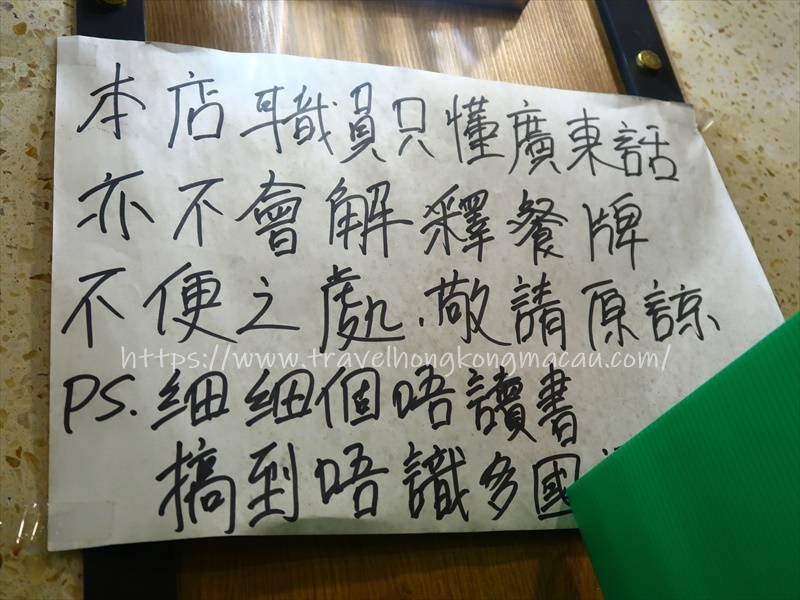 本店職員只懂廣東話
亦不會解釋餐牌
不便之處.敬請原諒
https://www.travelhongkongmacau.com/
PS.細細個唔讀書
搞到唔識多國